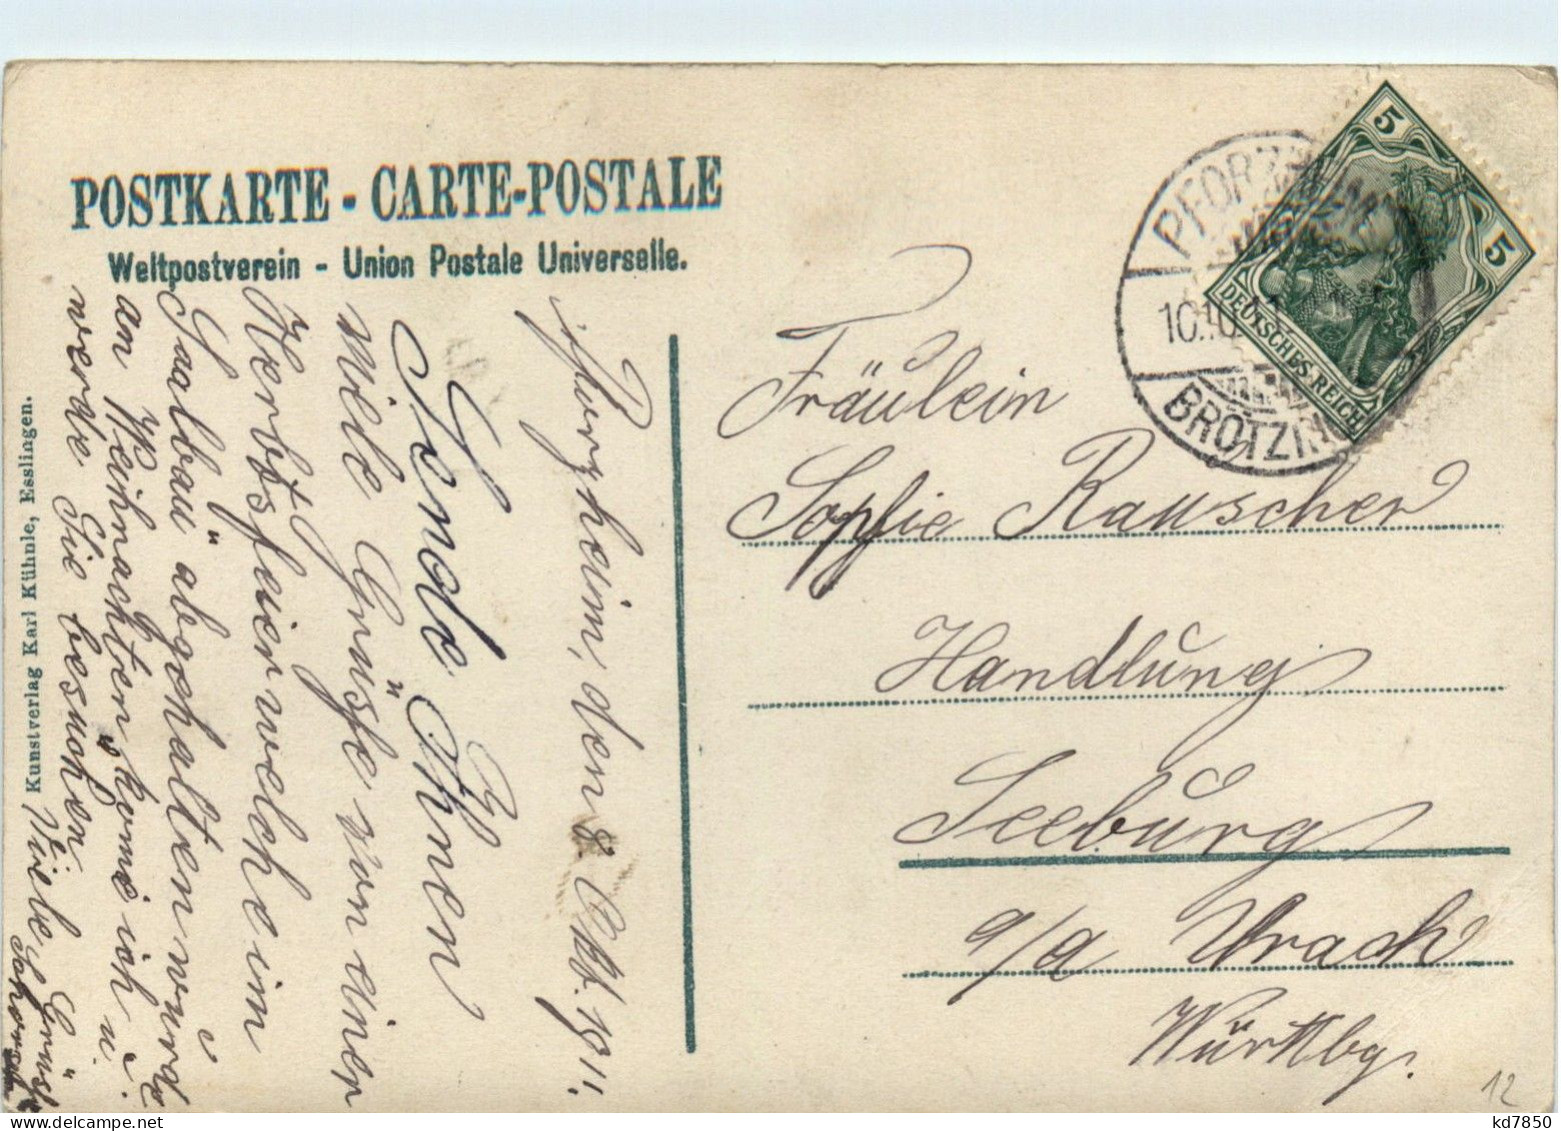 POSTKARTE - CARTE-POSTALE
Weltpostverein - Union Postale Universelle.
Pforzheim, den 8. Okt. 1911.
Sende Ihnen
viele Grüße von einer
Herbstfeier welche im
Saalbau abgehalten wurde
an Weihnachten kome ich u.
werde Sie besuchen.
Viele Grüße
Schorsch
Kunstverlag Karl Kühnle, Esslingen.
PFORZHEIM
10.10.11
BRÖTZING
5
5
DEUTSCHES REICH
Fräulein
Sophie Rauscher
Handlung
Seeburg
a/a Urach
Württbg.
12
kd7850